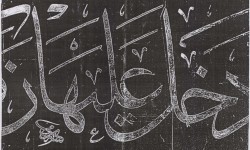 دخل عليها ز